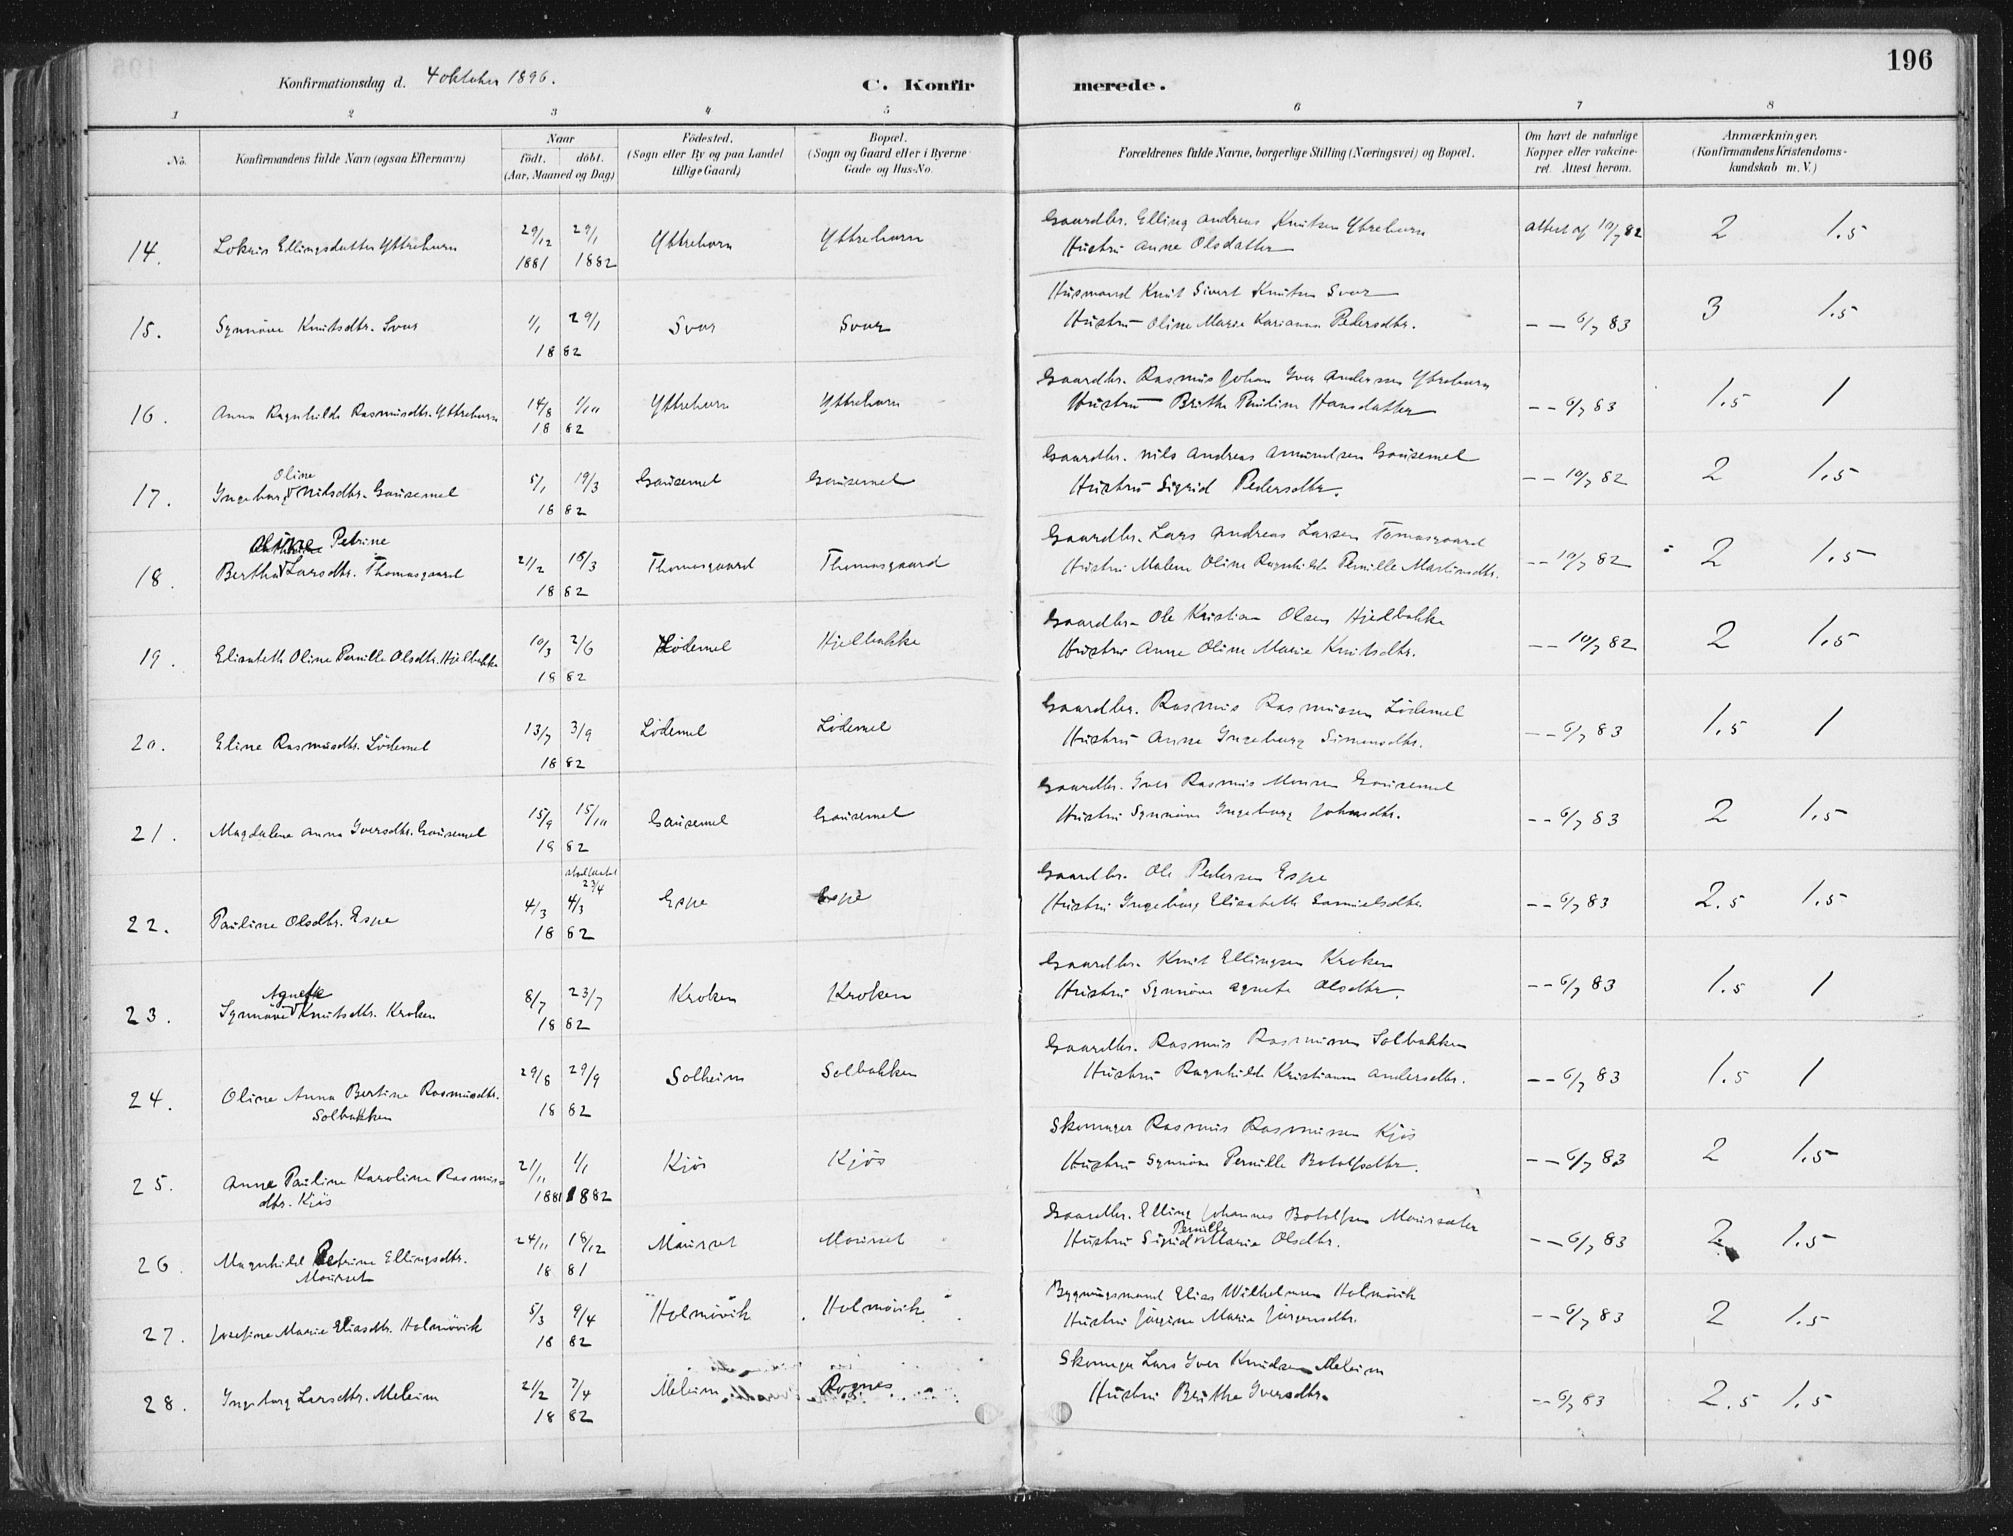 196
Konfirmationsdag d. 4 oktober 1896.
C. Konfirmerede.
1 2 3 4 5 6 7 8
No. Konfirmandens fulde Navn (ogsaa Efternavn) Naar födt. döbt. (Aar, Maaned og Dag) Födested. (Sogn eller By og paa Landet tillige Gaard) Bopæl. (Sogn og Gaard eller i Byerne Gade og Hus-No. Forældrenes fulde Navne, borgerlige Stilling (Næringsvei) og Bopæl. Om havt de naturlige Kopper eller vakcineret. Attest herom. Anmærkninger. (Konfirmandens Kristendomskundskab m. V.)
Gaardbr. Elling Andreas Knutsen Ytrehorn
14. Ellingsdatter Yttrehorn 29/12 1881 29/1 1882 Yttrehorn Yttrehorn Hustru Anne Olsdatter attest af 10/7 82 2 1.5
Husmand Knut Sivert Knutsen Svor
15. Synnöve Knutsdtr. Svor 1/1 29/1 1882 Svor Svor Hustru Oline Marie Karianna Pedersdtr. -- 6/7 83 3 1.5
Gaardbr. Rasmus Johan Iver Andersen Ytrehorn
16. Anna Ragnhild Rasmusdtr. Yttrehorn 14/8 1/10 1882 Yttrehorn Yttrehorn Hustru Brithe Pauline Hansdatter -- 6/7 83 1.5 1
Gaardbr. Nils Andreas Amundsen Gausemel
17. Ingeborg Oline Nilsdtr. Gausemel 5/1 19/3 1882 Gausemel Gausemel Hustru Sigrid Pedersdtr. -- 10/7 82 2 1.5
Gaardbr. Lars Andreas Larsen Tomasgaard
18. Bertha Oline Petrine Larsdtr. Thomasgaard 21/2 18/3 1882 Thomasgaard Thomasgaard Hustru Malene Oline Ragnhilde Pernille Martinsdtr. -- 10/7 82 2 1.5
Gaardbr. Ole Kristian Olsen Hjelbakke
19. Elisabeth Oline Pernille Olsdtr. Hjelbakke 10/3 2/6 1882 Lödemel Hjelbakke Hustru Anne Oline Marie Knutsdtr. -- 10/7 82 2 1.5
Gaardbr. Rasmus Rasmussen Lödemel
20. Eline Rasmusdtr. Lödemel 13/7 3/9 1882 Lödemel Lödemel Hustru Anne Ingeborg Simensdtr. -- 6/7 83 1.5 1
Gaardbr. Iver Rasmus Monsen Gausemel
21. Magdalene Anna Iversdtr. Gausemel 15/9 15/10 1882 Gausemel Gausemel Hustru Synnöve Ingeborg Johnsdtr. -- 6/7 83 2 1.5
Gaardbr. Ole Pedersen Espe
22. Pauline Olsdtr. Espe 4/3 4/3 23/4 1882 Espe Espe Hustru Ingeborg Elisabeth Samuelsdtr. -- 6/7 83 2.5 1.5
Gaardbr. Knut Ellingsen Kroken
23. Synnöve Agnette Knutsdtr. Kroken 8/7 23/7 1882 Kroken Kroken Hustru Synnöve Agnete Olsdtr. -- 6/7 83 1.5 1
Gaardbr. Rasmus Rasmussen Solbakken
24. Oline Anna Bertine Rasmusdtr. Solbakken 29/8 29/9 1882 Solheim Solbakken Hustru Ragnhilde Kristianne Andersdtr. -- 6/7 83 1.5 1
Skomager Rasmus Rasmussen Kjös
25. Anne Pauline Karoline Rasmusdtr. Kjös 21/11 1881 1/1 1882 Kjös Kjös Hustru Synnöve Pernille Botolfsdtr. -- 6/7 83 2 1.5
Gaardbr. Elling Johannes Botolfsen Maursæter
26. Magnhild Petrine Ellingsdtr. Maurset 24/11 18/12 1881 Maurset Maurset Hustru Sigrid Pernille Marie Olsdtr. -- 6/7 83 2 1.5
Bygningsmand Elias Wilhelmsen Holmövik
27. Josefine Marie Eliasdtr. Holmövik 5/3 9/4 1882 Holmövik Holmövik Hustru Jörgine Marie Jörgensdtr. -- 6/7 83 2 1.5
Skomager Lars Iver Knudsen Meleim
28. Ingeborg Larsdtr. Meleim 21/2 7/4 1882 Meleim Rognes Hustru Brithe Iversdtr. -- 6/7 83 2.5 1.5